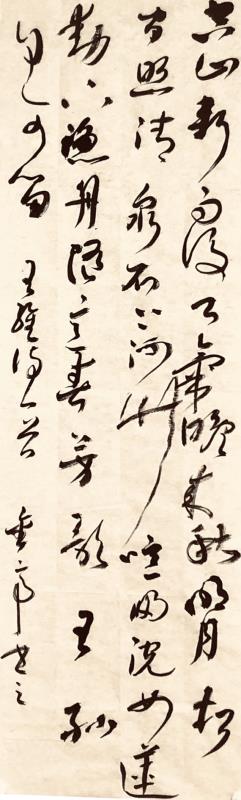 空山新雨後天氣晚來秋明月松
間照清泉石上流竹喧歸浣女蓮
動下漁舟隨意春芳歇王孫
自可留 王維詩一首 書之